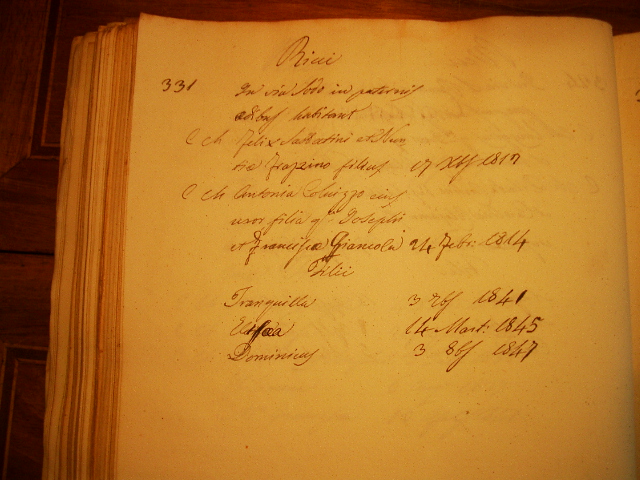 Ricci
331 In via Sodo in paternis
ædibus habitant
C ch Felix Sabbatini et Nun
tiæ Frazzino filius 17 Xbs 1817
C ch Antonia Coluzzo ejus
uxor filia qm Josephi
et Franciscæ Giancola 24 Febr: 1814
Filii
Tranquilla 3 7bs 1841
14 Mart: 1845
Dominicus 3 8bs 1847